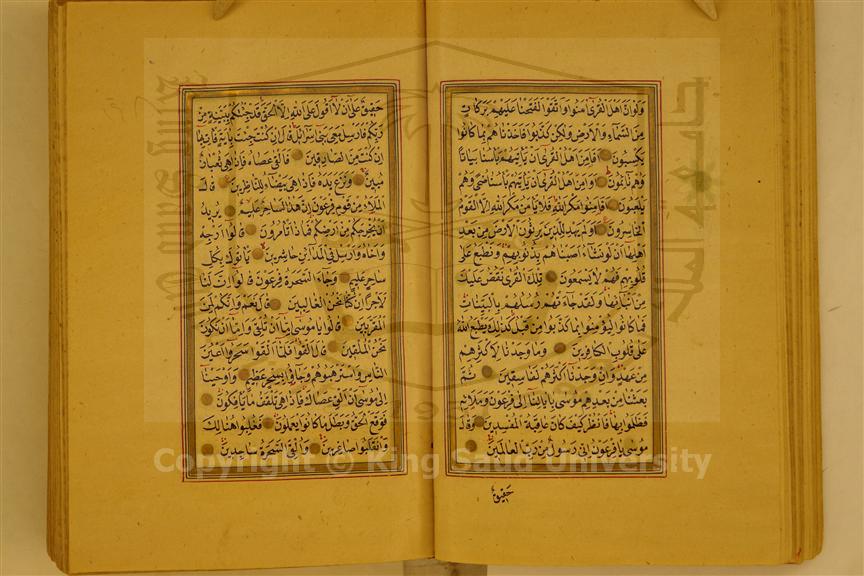 ولو ان اهل القرى امنوا واتقوا لفتحنا عليهم بركات
من السماء والارض ولكن كذبوا فاخذناهم بما كانوا
يكسبون افامن اهل القرى ان ياتيهم باسنا بياتا
وهم نائمون او امن اهل القرى ان ياتيهم باسنا ضحى وهم
يلعبون افامنوا مكر الله فلا يامن مكر الله الا القوم
الخاسرون اولم يهد للذين يرثون الارض من بعد
اهلها ان لو نشاء اصبناهم بذنوبهم ونطبع على
قلوبهم فهم لا يسمعون تلك القرى نقص عليك
من انبائها ولقد جاءتهم رسلهم بالبينات
فما كانوا ليؤمنوا بما كذبوا من قبل كذلك يطبع الله
على قلوب الكافرين وما وجدنا لاكثرهم
من عهد وان وجدنا اكثرهم لفاسقين ثم
بعثنا من بعدهم موسى باياتنا الى فرعون وملائه
فظلموا بها فانظر كيف كان عاقبة المفسدين وقال
موسى يا فرعون اني رسول من رب العالمين
حقيق
حقيق على ان لا اقول على الله الا الحق قد جئتكم ببينة من
ربكم فارسل معي بني اسرائل قال ان كنت جئت باية فات بها
ان كنت من الصادقين فالقى عصاه فاذا هي ثعبان
مبين ونزع يده فاذا هي بيضاء للناظرين قال
الملاء من قوم فرعون ان هذا لساحر عليم يريد
ان يخرجكم من ارضكم فماذا تامرون قالوا ارجه
واخاه وارسل في المداين حاشرين ياتوك بكل
ساحر عليم وجاء السحرة فرعون قالوا ان لنا
لاجرا ان كنا نحن الغالبين قال نعم وانكم لمن
المقربين قالوا يا موسى اما ان تلقي واما ان نكون
نحن الملقين قال القوا فلما القوا سحروا اعين
الناس واسترهبوهم وجاؤا بسحر عظيم واوحينا
الى موسى ان الق عصاك فاذا هي تلقف ما يافكون
فوقع الحق وبطل ما كانوا يعملون فغلبوا هنالك
وانقلبوا صاغرين والقي السحرة ساجدين
Copyright © King Saud University